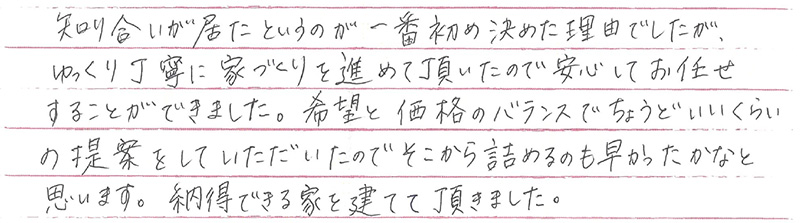 知り合いが居たというのが一番初め決めた理由でしたが、
ゆっくり丁寧に家づくりを進めて頂いたので安心してお任せ
することができました。希望と価格のバランスでちょうどいいくらい
の提案をしていただいたのでそこから詰めるのも早かったかなと
思います。納得できる家を建てて頂きました。